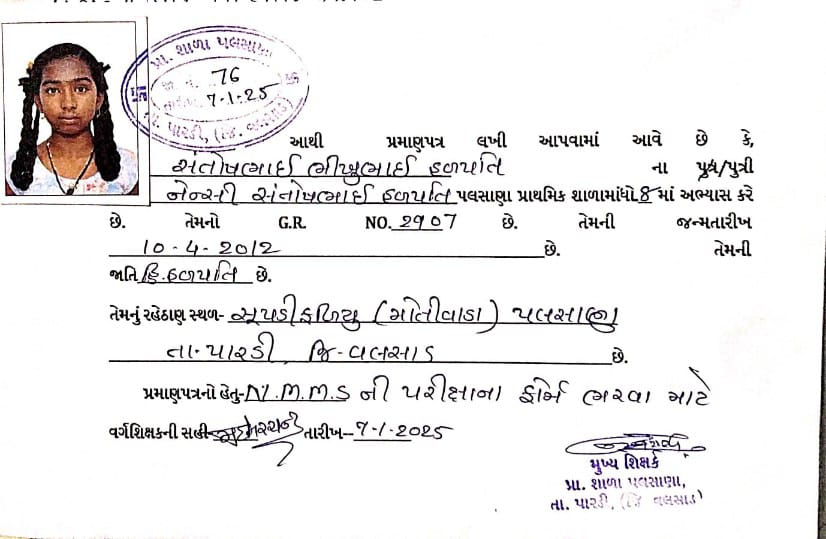 પ્રા. શાળા પલસાણા
જા. નં. 76
તારીખ: 7-1-25
તા. પારડી, (જિ. વલસાડ)
આથી પ્રમાણપત્ર લખી આપવામાં આવે છે કે,
સંતોષભાઈ ભીખુભાઈ હળપતિ ના પુત્ર/પુત્રી
નેન્સી સંતોષભાઈ હળપતિ પલસાણા પ્રાથમિક શાળામાં ધો. 8 માં અભ્યાસ કરે
છે. તેમનો G.R. NO. 2907 છે. તેમની જન્મતારીખ
10-4-2012 છે. તેમની
જાતિ હિ.હળપતિ છે.
તેમનું રહેઠાણ સ્થળ- સૂપડીફળિયુ (મોતીવાડા) પલસાણા
તા-પારડી જિ-વલસાડ છે.
પ્રમાણપત્રનો હેતુ- N.M.M.S ની પરીક્ષાના ફોર્મ ભરવા માટે
વર્ગશિક્ષકની સહી તારીખ- 7-1-2025
મુખ્ય શિક્ષક
પ્રા. શાળા પલસાણા,
તા. પારડી, (જિ વલસાડ)